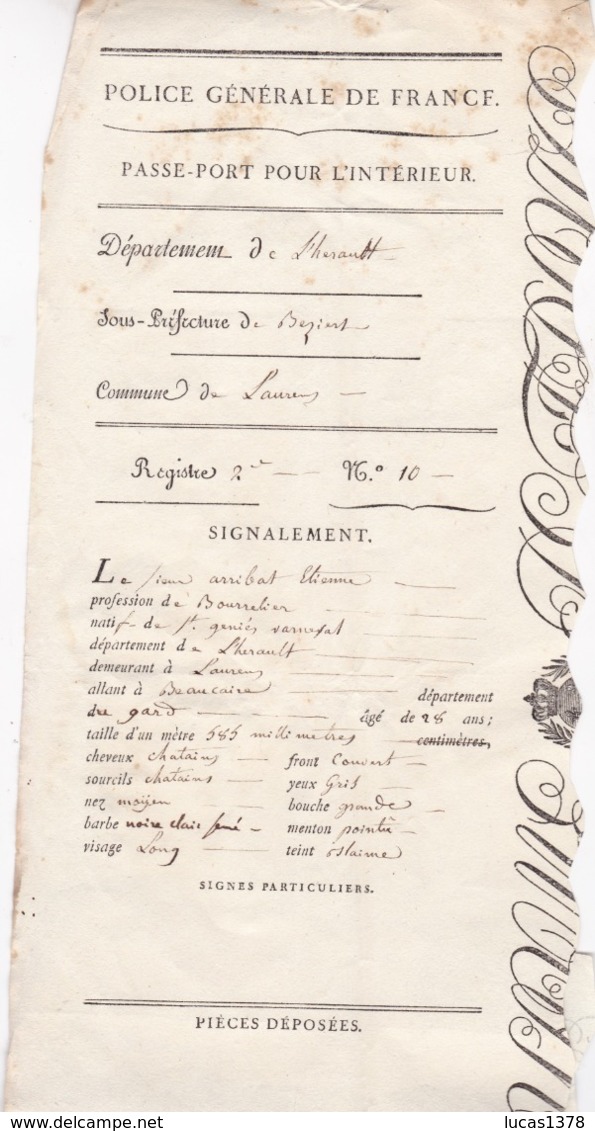 POLICE GÉNÉRALE DE FRANCE.
PASSE-PORT POUR L'INTÉRIEUR.
Département de L'herault
Sous-Préfecture de Beziers
Commune de Laurens
Registre 2 N.º 10
SIGNALEMENT.
Le sieur arribat Etienne
profession de Bourrelier
natif de St. geniés varnesal
département de L'herault
demeurant à Laurens
allant à Beaucaire département
du gard âgé de 28 ans;
taille d'un mètre 585 millimetres centimètres,
cheveux chatains front Couvert
sourcils chatains yeux Gris
nez moyen bouche grande
barbe noire clair semé menton pointu
visage Long teint
SIGNES PARTICULIERS.
PIÈCES DÉPOSÉES.
lucas1378